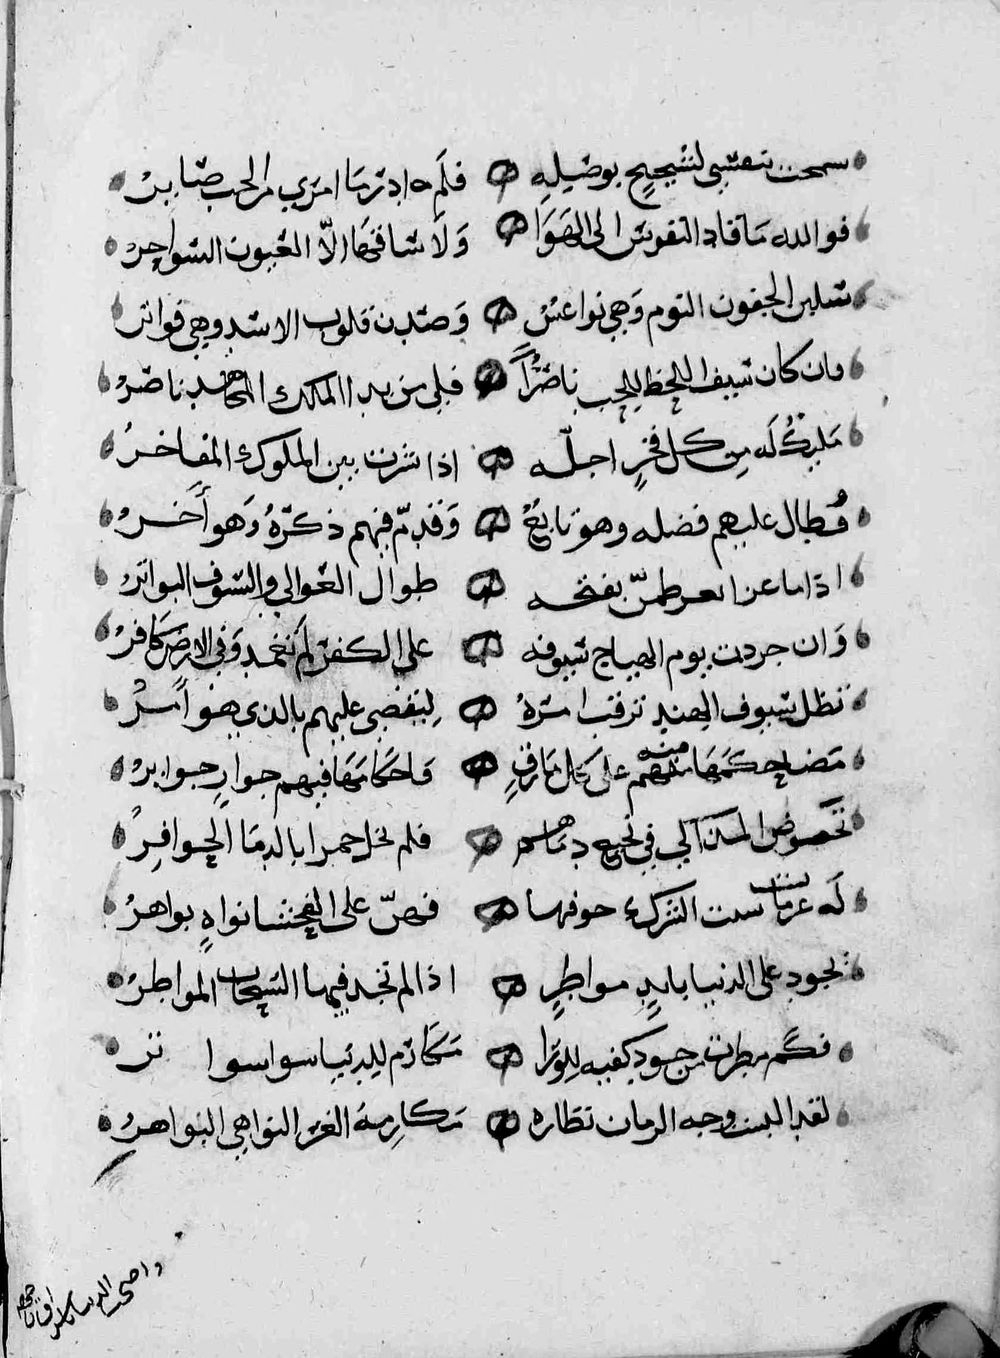 سمحت بنفسي لشحيح بوصله فلم ادر ما امري من الحب صابر
فوالله ما قاد النفوس الى الهوا ولا ساقها الا العيون السواحر
سلبن الجفون النوم وهي نواعس وصدن قلوب الاسد وهي فواتر
وان كان سيف اللحظ للحب ناصرا فلي من يد الملك المجاهد ناصر
مليك له من كل فخر اجله اذا نثرت بين الملوك المفاخر
فطال عليهم فضله وهو تابع وقدم فيهم ذكره وهو آخر
اذا ما عزا بفتحه طوال العوالي والسيوف البواتر
وان جردت يوم الهياج سيوفه على الكفر لم تغمد وفي الارض كافر
تظل سيوف الهند ترقب امره لتقضي عليهم بالذي هو آمر
منه على كل مارق واحكامها فيهم جوار جوابر
تخوض المذاكي في نجيع دماهم فلم تخل حمرا بالدما الحوافر
له الشرك خوفها فهن على الفحشا نواه بواهر
يجود على الدنيا بايد مواطر اذا لم تجد فيها السحاب المواطر
فكم مطرت من جود كفيه للورا مكارم للدنيا سوا سوا تر
لقد البست وجه الزمان نظاره مكارمه الغر النواهي البواهر
واضحت الدنيا